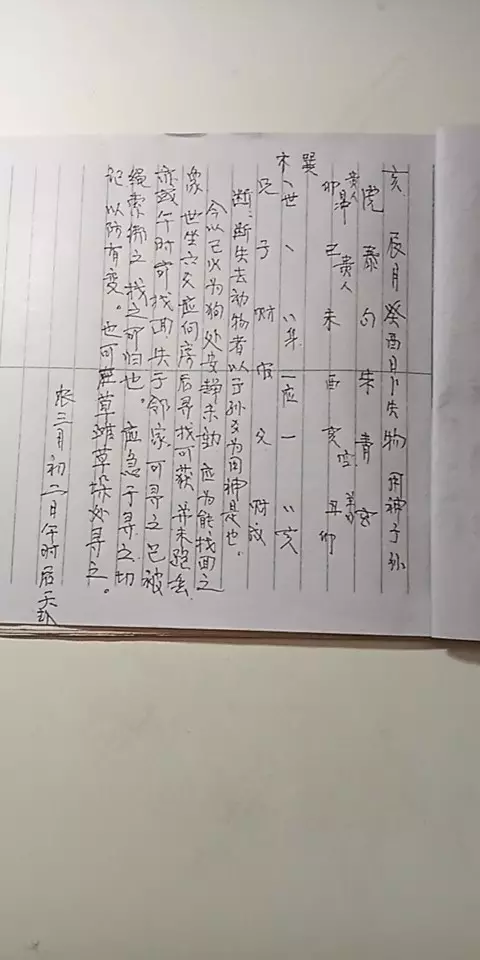 亥 辰月癸酉日卜失物 用神子孙
虎 螣 勾 朱 青 玄
贵人 贵人
卯 巳 未 酉 亥空 丑
巽
木、世 、 应
兄 子 财 父 财
断:断失去动物者以子孙爻为用神是也。
今以巳火为狗处安静未动,应为能找回之
象。世坐六爻应向房后寻找可获,并未跑丢
亦或午时可找回,失于邻家可寻之,已被
绳索绑之,找之可归也。应急于寻之,切
记以防有变。也可在草堆草垛处寻之。
农三月初二日午时